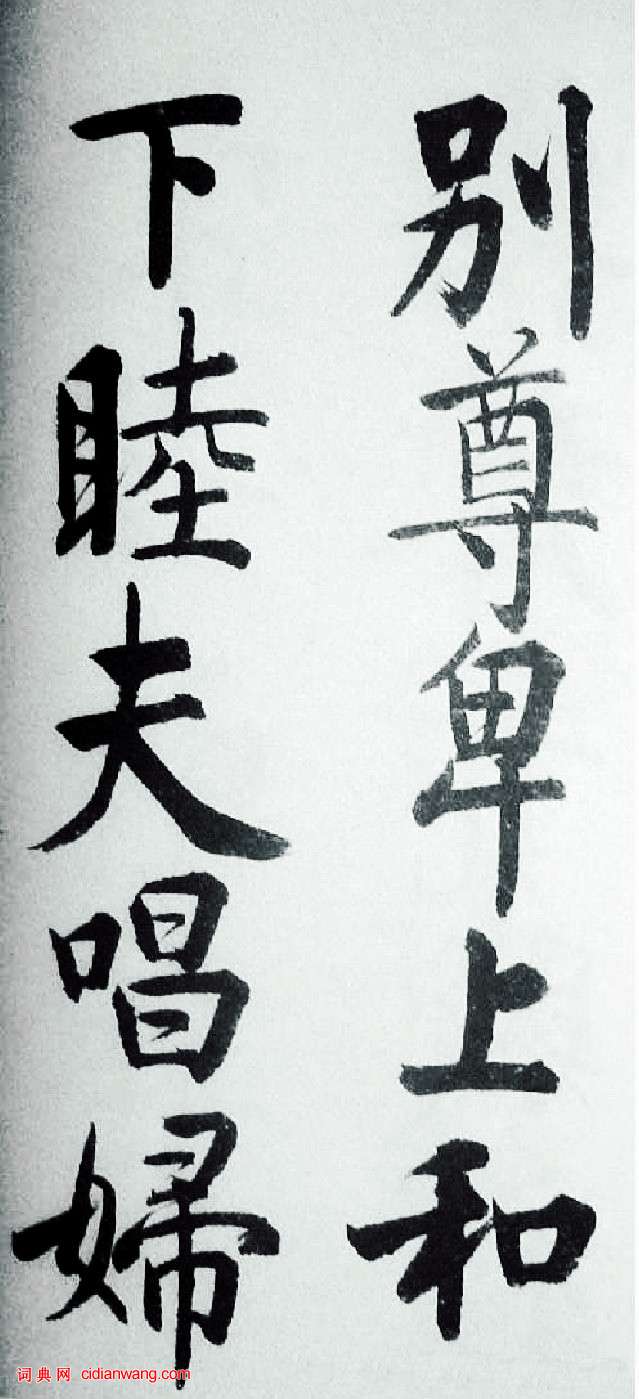 别尊卑上和
下睦夫唱婦
词典网 cidianwang.com